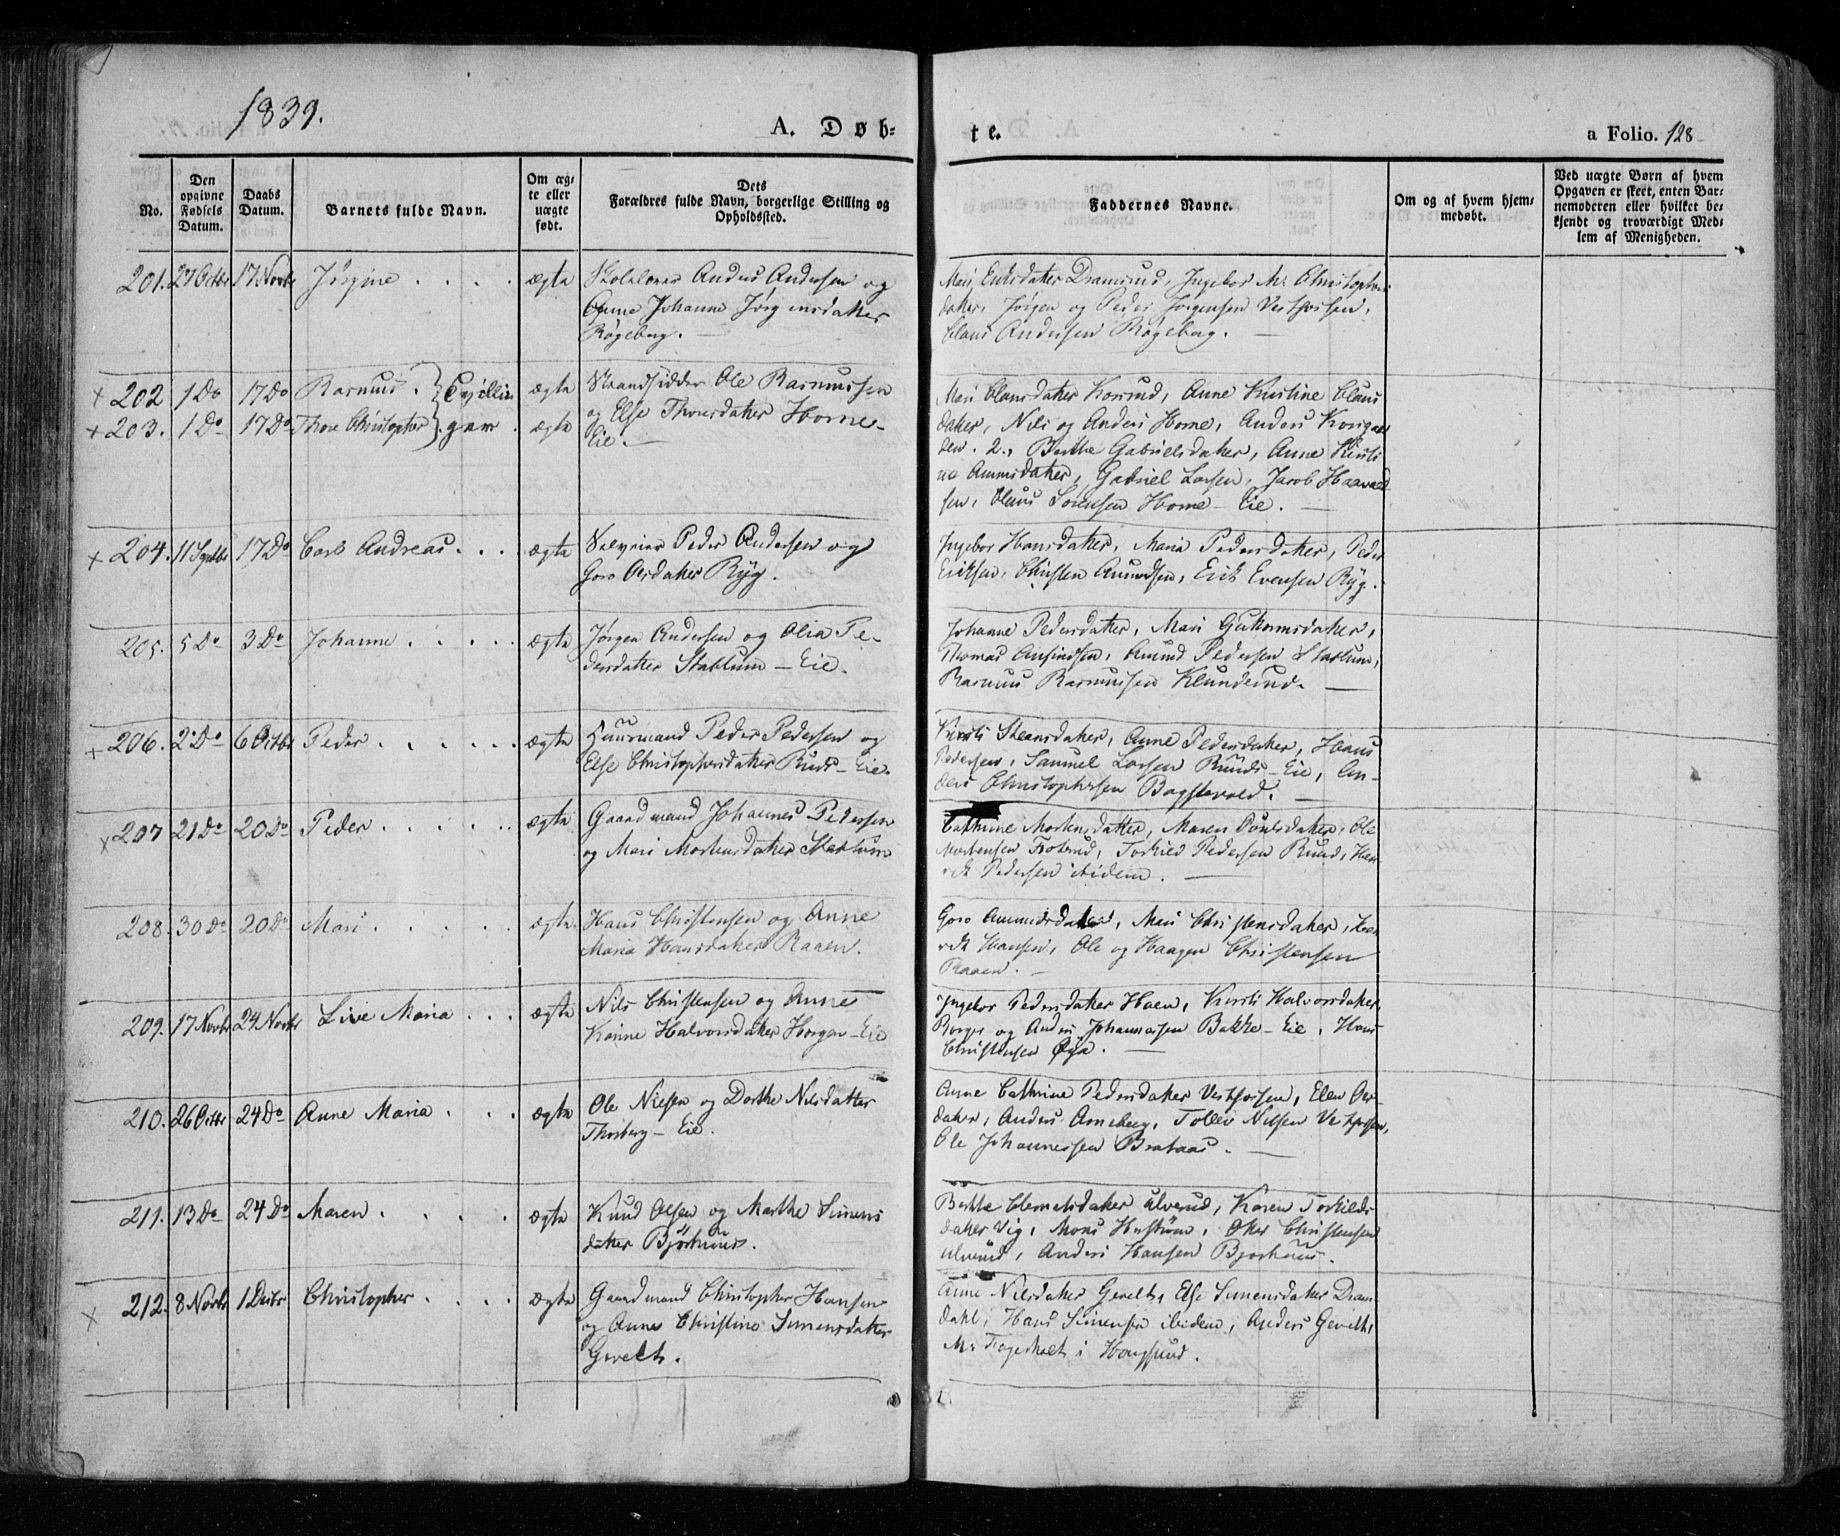 1839.
A. Døb-
te.
a Folio. 128
No.
Den opgivne Fødsels Datum.
Daabs Datum.
Barnets fulde Navn.
Om ægte eller uægte født.
Dets Forældres fulde Navn, borgerlige Stilling og Opholdssted.
Faddernes Navne.
Om og af hvem hjemmedøbt.
Ved uægte Børn af hvem Opgaven er skeet, enten Barnemoderen eller hvilket bekjendt og troværdigt Medlem af Menigheden.
201. 27 Octbr 17 Novbr Jørgine . . . . ægte Skolelærer Anders Andersen og
Anne Johanne Jørgensdatter
Røgeberg.
Mari Dramsrud, Ingebor M. Christophers
datter, Jørgen og Peder Jørgensen Vestfossen,
Claus Andersen Røgeberg.
+ 202 1 Do 17 Do Rasmus . } Tvillin ægte Strandsidder Ole Rasmussen
+ 203. 1 Do 17 Do Thore Christopher } ger . ægte og Else Thorsdatter Horne
Eie.
Mari Clausdatter Korsrud, Anne Kirstine Claus
datter, Nils og Anders Horne, Anders
2, Berthe Gabrielsdatter, Anne Kirsti
ne Amunsdatter, Gabriel Larsen, Jacob Haavald
sen, Claus Sørensen Horne - Eie.
+ 204. 11 Septbr 17 Do Carl Andreas . . . ægte Selveier Peder Andersen og
Goro Olsdatter Ryg.
Ingebor Hansdatter, Maria Pedersdatter, Peder
Eriksen, Christen Amundsen, Erik Evensen Ryg.
205. 5 Do 3 Do Johanne . . . . ægte Jørgen Andersen og Olia Pe-
dersdatter Stablum - Eie.
Johanne Pedersdatter, Mari Guttormsdatter,
Thomas Ansindsen, Amund Pedersen Stablum,
Rasmus Rasmussen Klunderud.
+ 206. 2 Do 6 Octbr Peder . . . . . ægte Huusmand Peder Pedersen og
Else Christophersdatter Ruud - Eie.
Kirsti Steensdatter, Anne Pedersdatter, Hans
Pedersen, Samuel Larsen Ruuds - Eie, An-
ders Christophersen Bagstevold.
x 207 21 Do 20 Do Peder . . . . . ægte Gaardmand Johannes Pedersen
og Mari Mortensdatter Stablum
Cathrine Mortensdatter, Maren Poulsdatter, Ole
Mortensen Foterud, Torkild Pedersen Ruud, Hen
rik Pedersen ibidem.
208. 30 Do 20 Do Mari . . . . . ægte Hans Christensen og Anne
Maria Hansdatter Raaen.
Goro Ammundsdatter, Mari Christensdatter, Hen
rik Hansen, Ole og Haagen Christensen
Raaen.
209. 17 Novbr 24 Novbr Live Maria . . . ægte Nils Christensen og Anne
Karine Halvorsdatter Horgen - Eie
Ingebor Pedersdatter Hoen, Kirsti Halvorsdatter,
Borger og Anders Johannessen Bakke - Eie, Hans
Christensen Øya.
210. 26 Octbr 24 Do Anne Maria . . . ægte Ole Nilsen og Dorthe Nilsdatter
Thorberg - Eie.
Anne Cathrine Pedersdatter Vestfossen, Elen Ols-
datter, Anders Arneberg, Tollev Nilsen Vestfossen,
Ole Johannessen Brataas.
211. 13 Do 24 Do Maren . . . . ægte Knud Olsen og Marthe Simens
datter Bjørhuus.
Berthe Clemetsdatter Ulverud, Karen Torkilds
datter Vig, Mons, Christensen
Ulverud, Anders Hansen Bjørhuus.
x 212. 8 Novbr 1 Decbr Christopher . . . . ægte Gaardmand Christopher Hansen
og Anne Christine Simensdatter
Gevelt.
Anne Nilsdatter Gevelt, Else Simensdatter Dram-
dahl, Hans Simensen ibidem, Anders Gevelt,
M. i Hougsund.